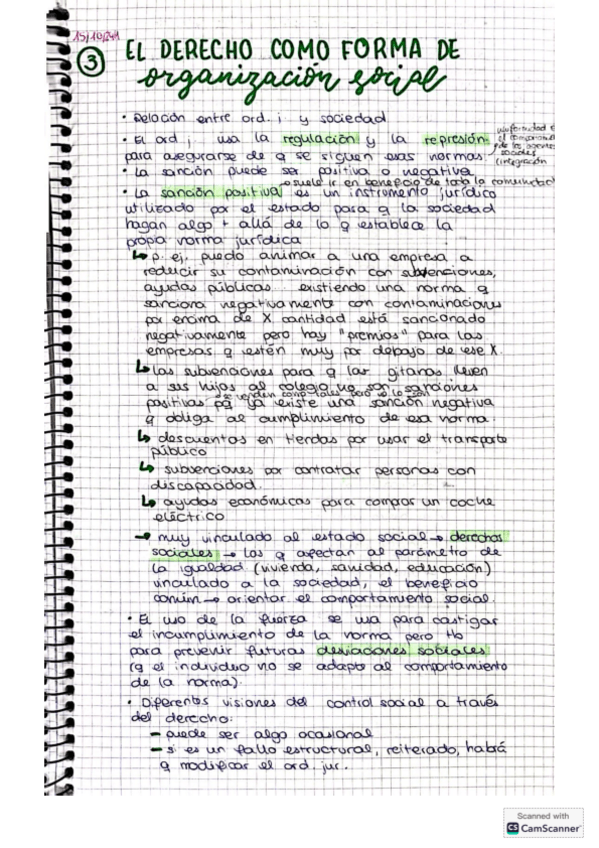 15/10/24
3 EL DERECHO COMO FORMA DE
organización social
• Relación entre ord. j y sociedad
• El ord j usa la regulación y la represión
para asegurarse de q se siguen esas normas.
sociales
(integración
• La sanción puede ser positiva o negativa
→ suele ir en beneficio de toda la comunidad
• La sanción positiva es un instrumento jurídico
utilizado por el estado para q la sociedad
hagan algo + allá de lo q establece la
propia norma jurídica
↳ p. ej. puedo animar a una empresa a
reducir su contaminación con subvenciones,
ayudas públicas... existiendo una norma q
sanciona negativamente con contaminaciones
por encima de X cantidad está sancionado
negativamente pero hay "premios" para las
empresas q estén muy por debajo de ese X.
↳ las subvenciones para q las gitanas lleven
a sus hijos al colegio no son sanciones
se venden como tales pero no lo son
positivas pq ya existe una sanción negativa
q obliga al cumplimiento de esa norma.
↳ descuentos en tiendas por usar el transporte
público
↳ subvenciones por contratar personas con
discapacidad.
↳ ayudas económicas para comprar un coche
eléctrico
→ muy vinculado al estado social → derechos
sociales → los q afectan al parámetro de
la igualdad (vivienda, sanidad, educación)
vinculado a la sociedad, el beneficio
común → orientar el comportamiento social.
• El uso de la fuerza se usa para castigar
el incumplimiento de la norma pero tb
para prevenir futuras desviaciones sociales
(q el individuo no se adapte al comportamiento
de la norma).
• Diferentes visiones del control social a través
del derecho:
– puede ser algo ocasional
– si es un fallo estructural, reiterado, habrá
q modificar el ord. jur.
Scanned with
CS CamScanner